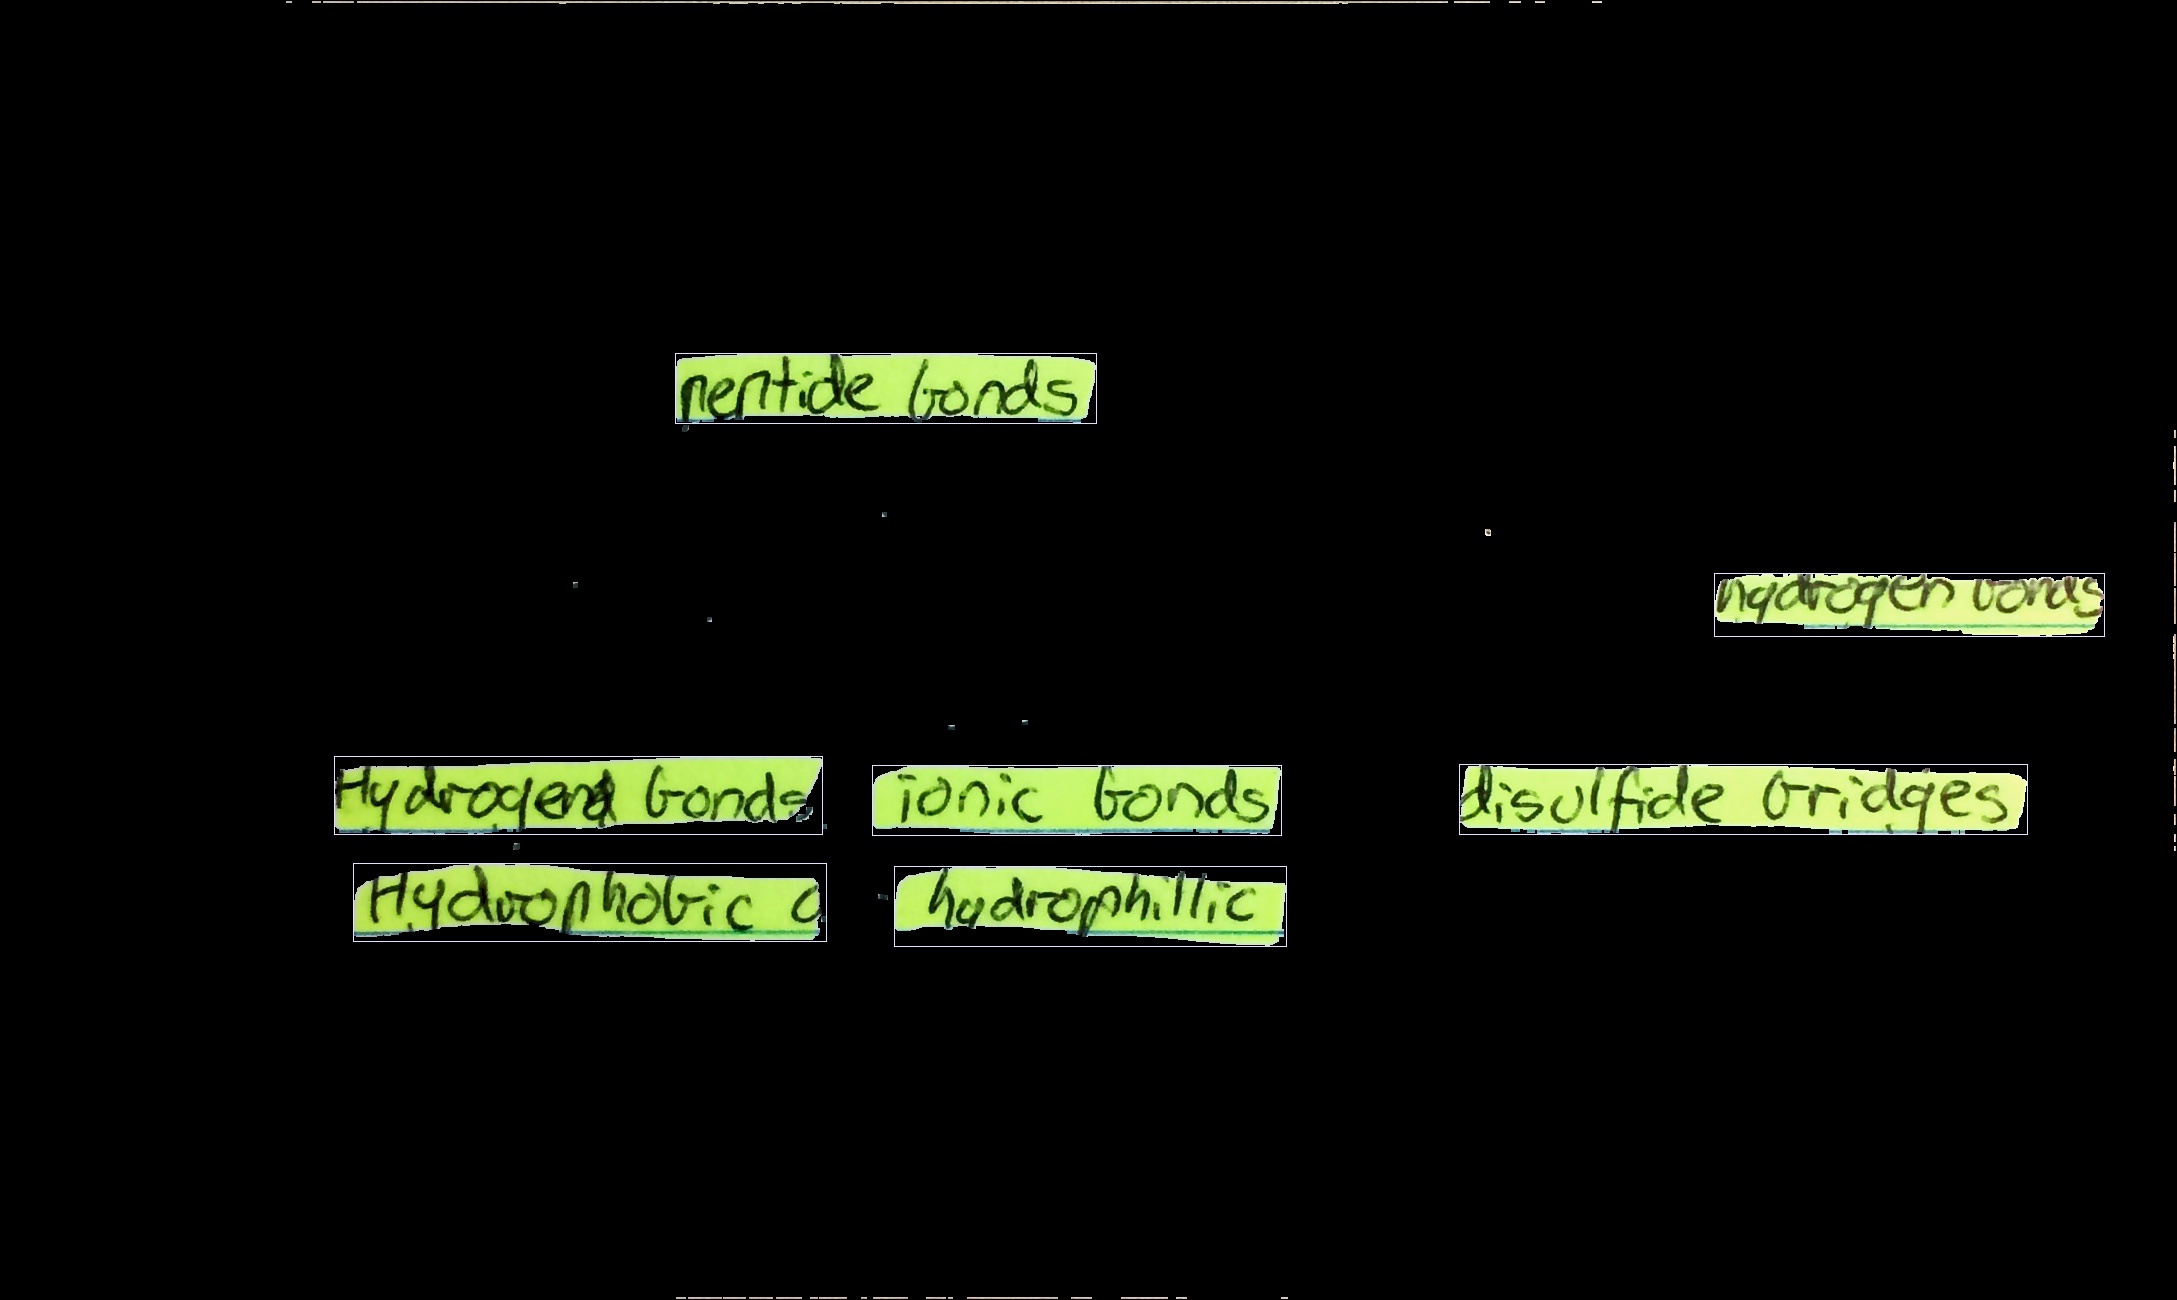 peptide bonds
hydrogen bonds
Hydrogen bonds ionic bonds disulfide bridges
Hydrophobic hydrophillic